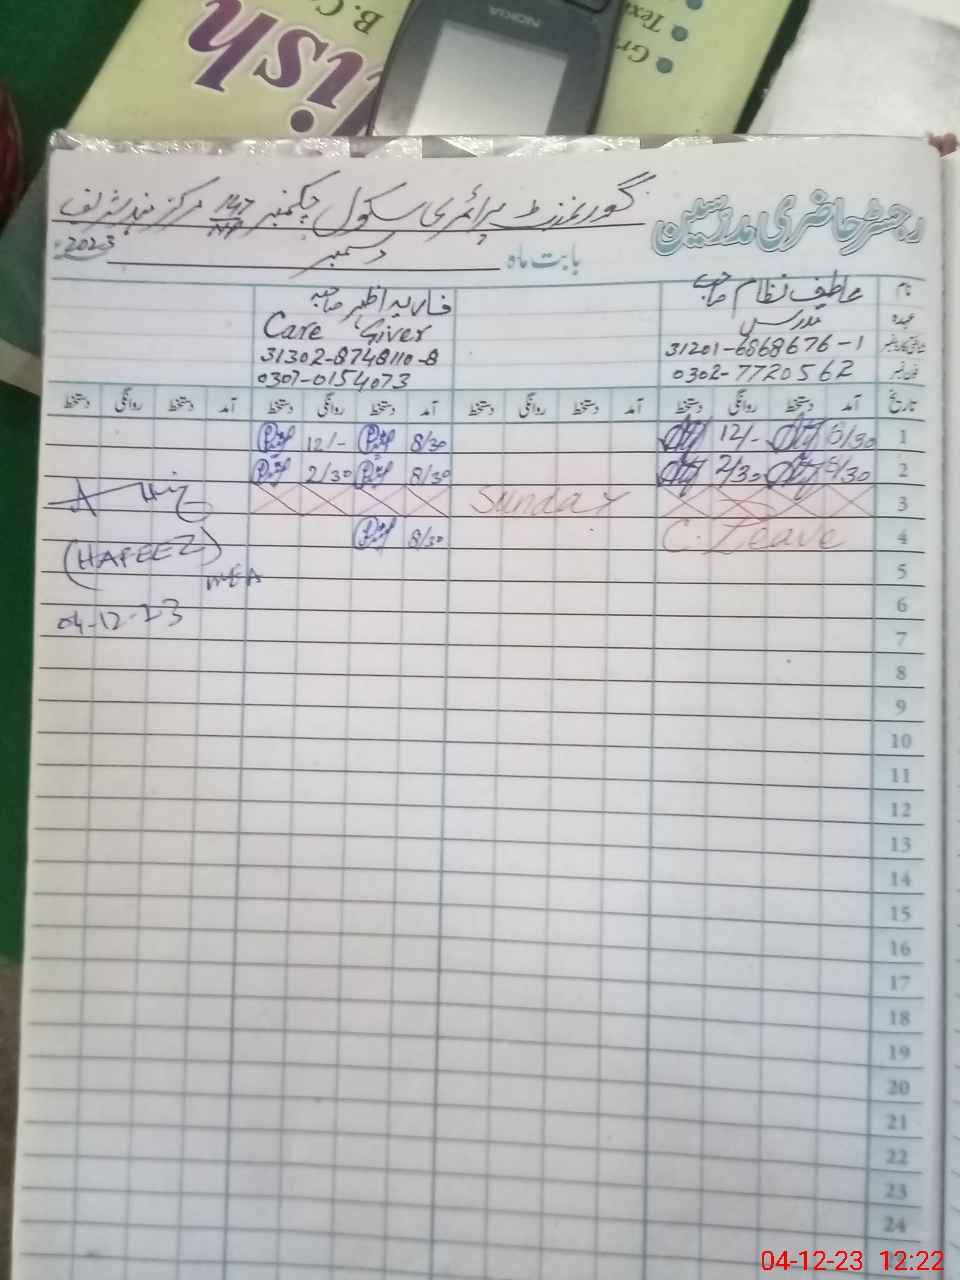 ish
B.C
NOKIA
Gr
Tex
رجسٹر حاضری مدرسین
گورنمنٹ پرائمری سکول چکنمبر 147/NP مرکز
بابت ماہ دسمبر 2023ء
نام عاطف نظام صاحب
عہدہ مدرس Care Giver
31201-6868676-1 31302-8748110-8
فون نمبر 0302-7720562 0307-0154073
تاریخ آمد دستخط روانگی دستخط آمد دستخط روانگی دستخط آمد دستخط روانگی دستخط آمد دستخط روانگی دستخط
1 8/30 12/- 8/30 12/-
2 8/30 2/30 8/30 2/30
3 Sunday
4 C. Leave 8/30
(HAFEEZ)
MEA
04-12-23
5
6
7
8
9
10
11
12
13
14
15
16
17
18
19
20
21
22
23
24
04-12-23 12:22